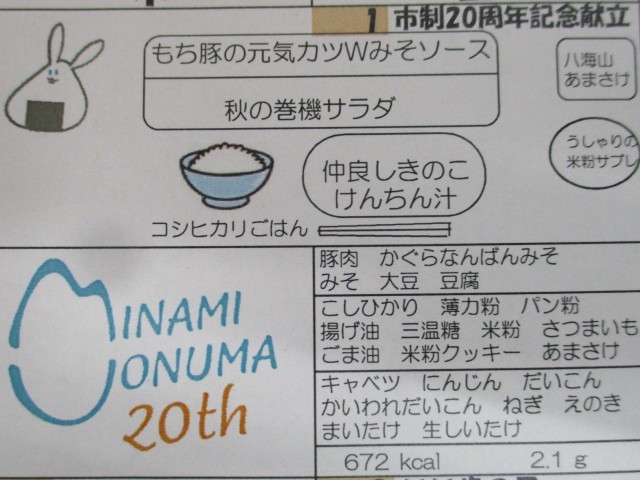 1 市制20周年記念献立
もち豚の元気カツWみそソース
秋の巻機サラダ
八海山
あまさけ
うしゃりの
米粉サブレ
仲良しきのこ
けんちん汁
コシヒカリごはん
豚肉 かぐらなんばんみそ
みそ 大豆 豆腐
こしひかり 薄力粉 パン粉
揚げ油 三温糖 米粉 さつまいも
ごま油 米粉クッキー あまさけ
キャベツ にんじん だいこん
かいわれだいこん ねぎ えのき
まいたけ 生しいたけ
672 kcal 2.1 g
MINAMI
UONUMA
20th